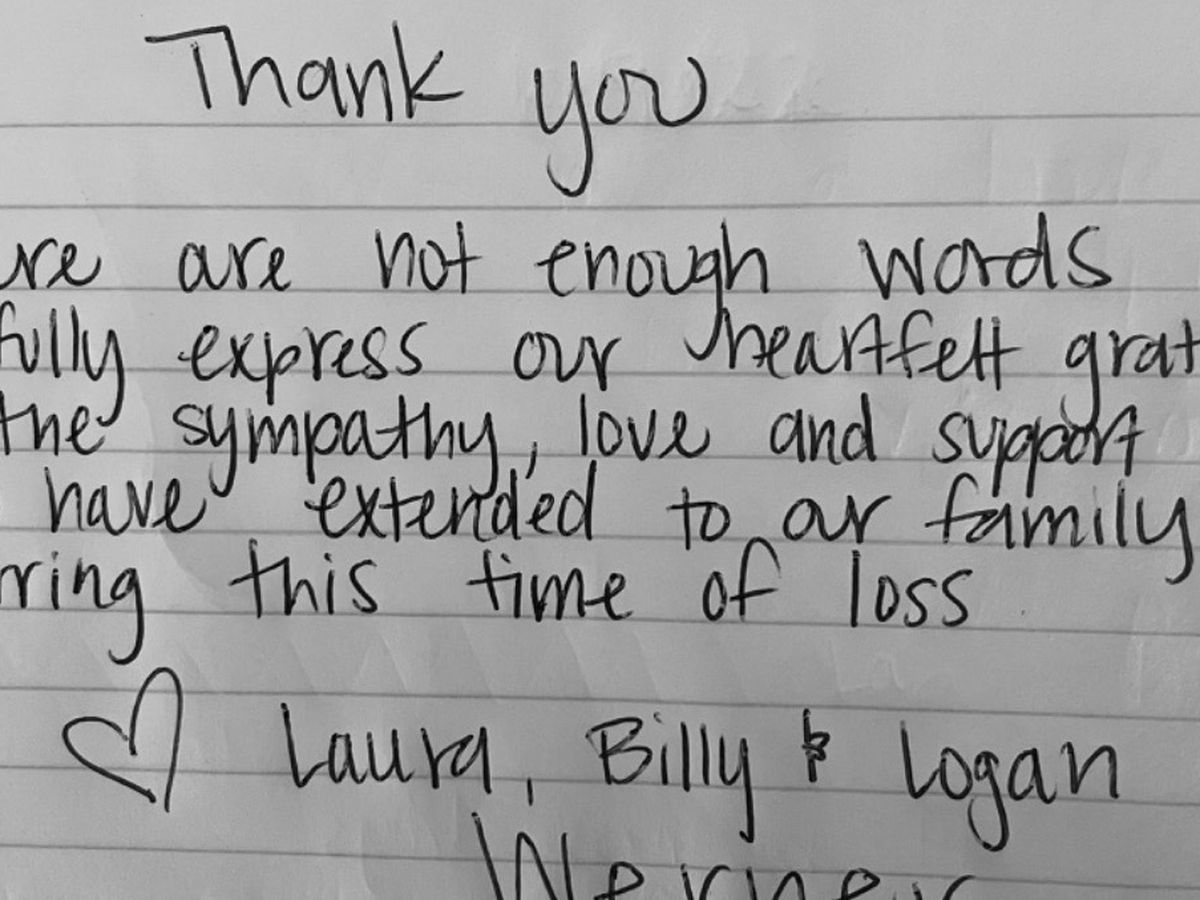 Thank you
ere are not enough words
fully express our heartfelt grat
the sympathy, love and support
have extended to our family
ring this time of loss
♡ Laura, Billy & Logan